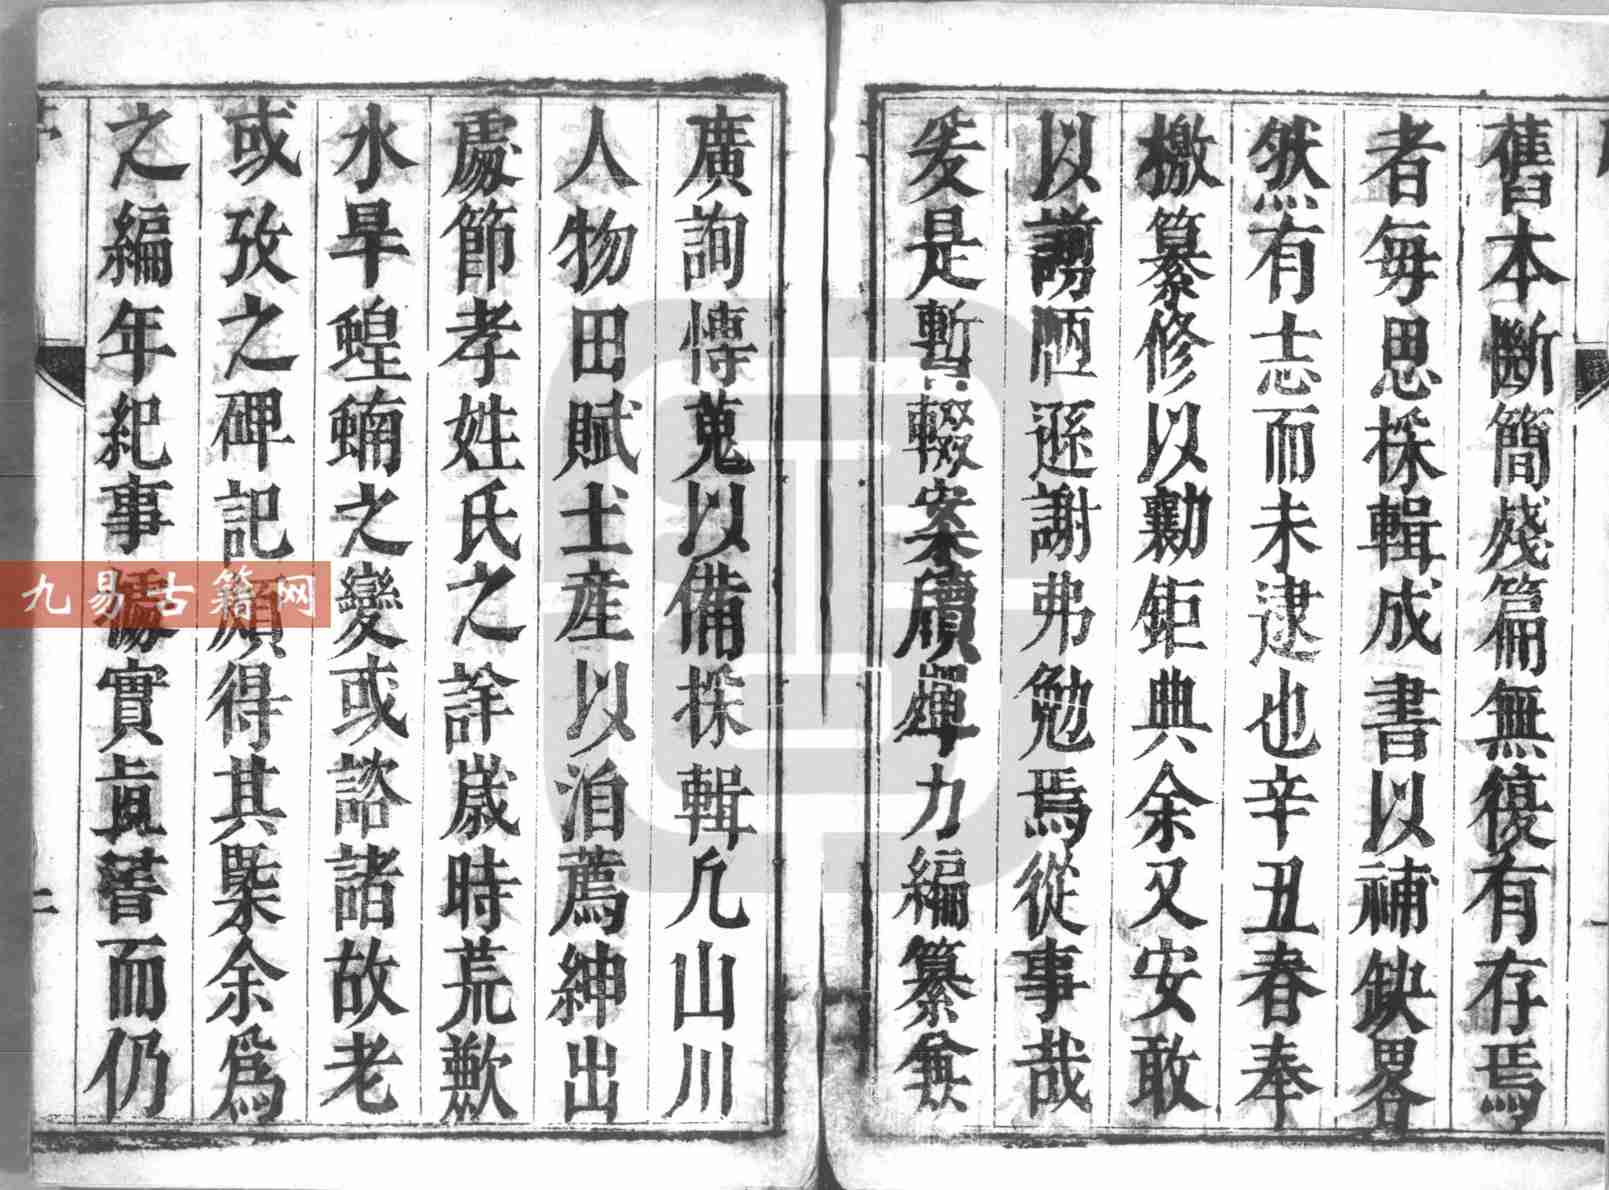 舊本斷簡殘篇無復有存焉
者每思採輯成書以補缺畧
然有志而未逮也辛丑春奉
檄纂修以勷鉅典余又安敢
以謭陋遜謝弗勉焉從事哉
爰是暫輟案牘殫力編纂兼
廣詢博蒐以備採輯凡山川
人物田賦土產以洎薦紳出
處節孝姓氏之詳歲時荒歉
水旱蝗蝻之變或諮諸故老
或攷之碑記頗得其槩余為
之編年紀事據實直書而仍
二
九易古籍网